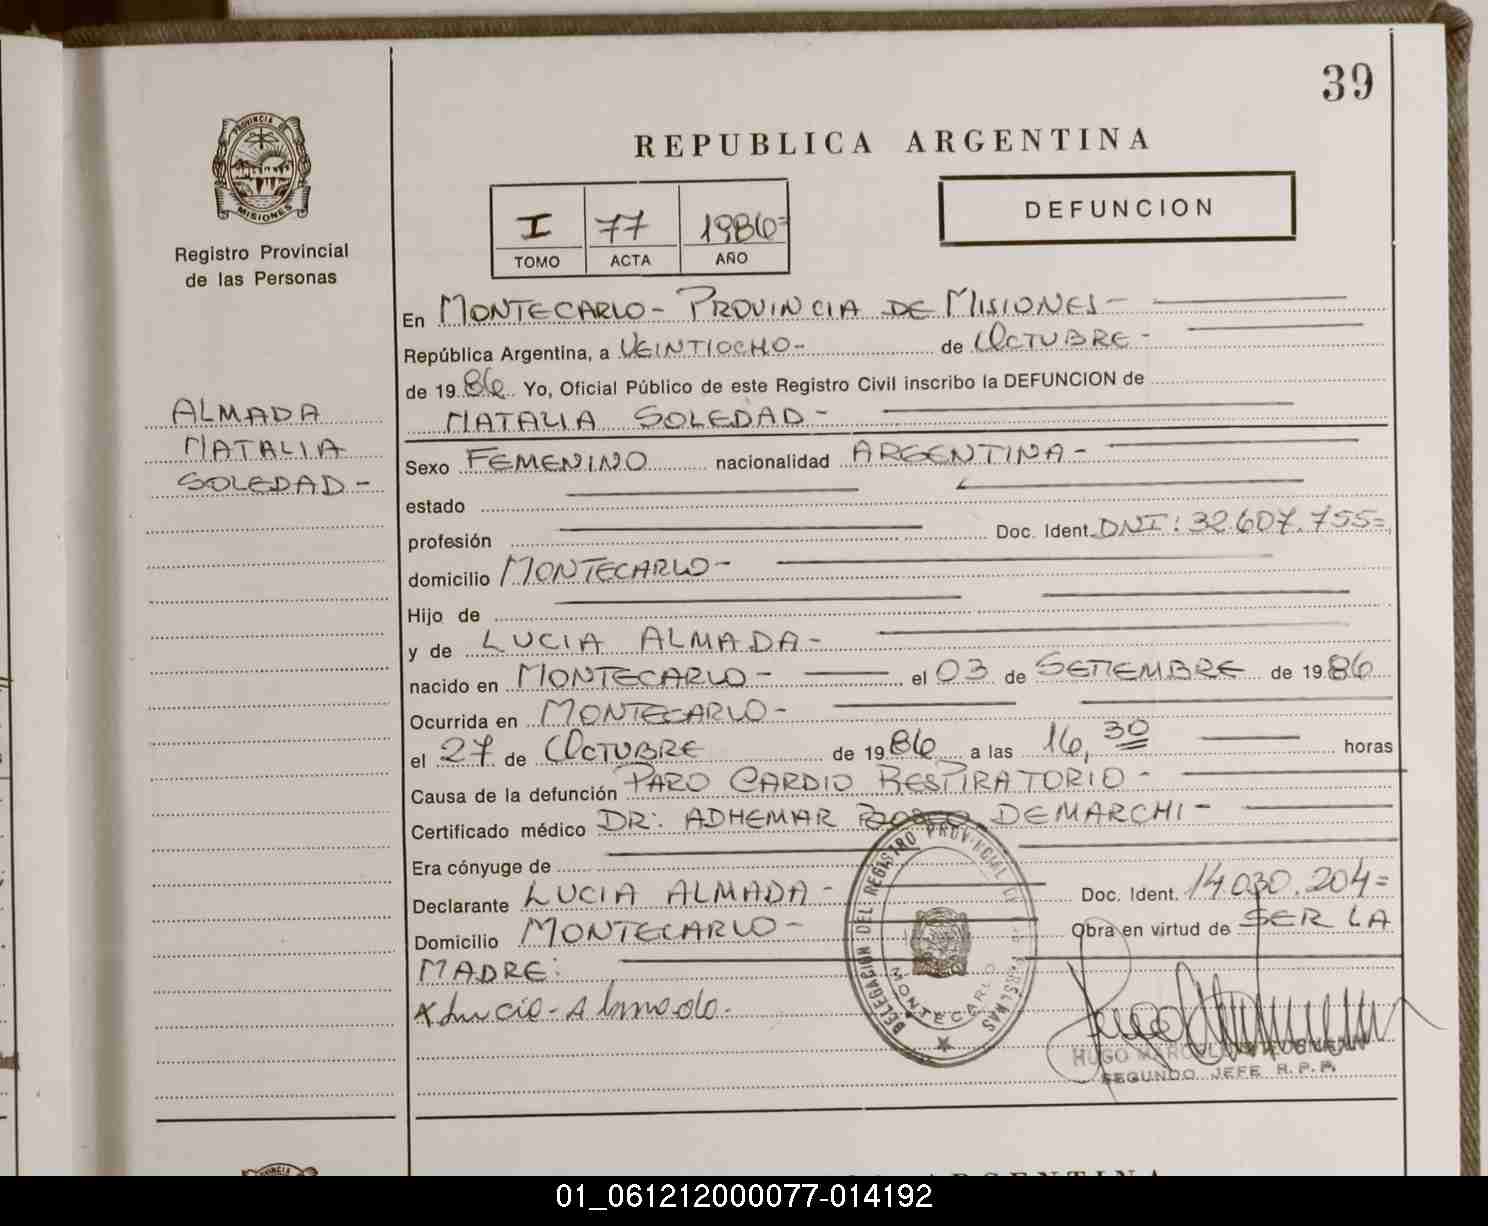 39
REPUBLICA ARGENTINA
PROVINCIA DE
MISIONES
Registro Provincial
de las Personas
I 77 1986=
TOMO ACTA AÑO
DEFUNCION
ALMADA
NATALIA
SOLEDAD-
En MONTECARLO- PROVINCIA DE MISIONES-
República Argentina, a VEINTIOCHO- de OCTUBRE-
de 1986 Yo, Oficial Público de este Registro Civil inscribo la DEFUNCION de
NATALIA SOLEDAD-
Sexo FEMENINO nacionalidad ARGENTINA-
estado
profesión Doc. Ident. DNI: 32.607.755=
domicilio MONTECARLO-
Hijo de
y de LUCIA ALMADA-
nacido en MONTECARLO- el 03 de SETIEMBRE de 1986
Ocurrida en MONTECARLO-
el 27 de OCTUBRE de 1986 a las 16,30 horas
Causa de la defunción PARO CARDIO RESPIRATORIO-
Certificado médico DR: ADHEMAR DEMARCHI-
Era cónyuge de
Declarante LUCIA ALMADA- Doc. Ident. 14.030.204=
Domicilio MONTECARLO- Obra en virtud de SER LA
MADRE:
x Lucia - Almada.
DELEGACION DEL REGISTRO PROVINCIAL DE LAS PERSONAS
MONTECARLO
HUGO
SEGUNDO JEFE R.P.P.
ARGENTINA
01_061212000077-014192